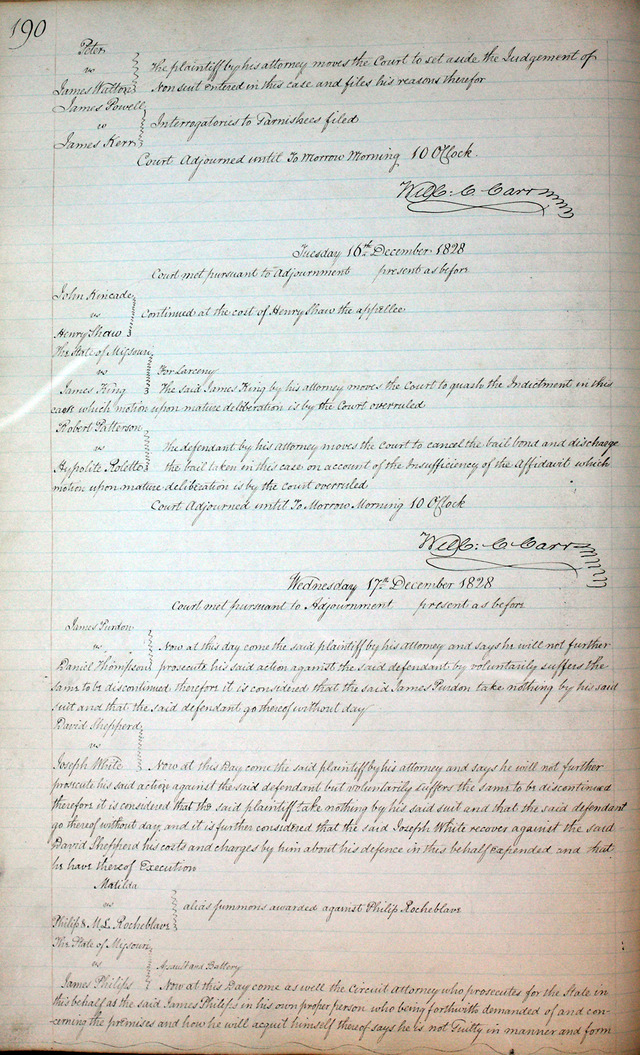 190
Peter
vs
James Walton
The plaintiff by his attorney moves the Court to set aside the Judgement of
Nonsuit entered in this case and files his reasons therefor
James Powell
vs
James Kerr
Interrogatories to Garnishees filed
Court Adjourned until To Morrow Morning 10 OClock.
Will: C Carr
Tuesday 16th December 1828
Court met pursuant to Adjournment present as before
John Kincade
vs
Henry Shaw
Continued at the cost of Henry Shaw the appellee
The State of Missouri
vs
James King
For Larceny
The said James King by his attorney moves the Court to quash the Indictment in this
case which motion upon mature deliberation is by the Court overruled
Robert Patterson
vs
Hypolite Roletto
The defendant by his Attorney moves the Court to cancel the bail bond and discharge
the bail taken in this case on account of the Insufficiency of the Affidavit which
motion upon mature deliberation is by the Court overruled
Court Adjourned until To Morrow Morning 10 OClock
Will: C Carr
Wednesday 17th December 1828
Court met pursuant to Adjournment present as before
James Purdon
vs
Daniel Thompson
Now at this day come the said plaintiff by his attorney and says he will not further
prosecute his said action against the said defendant by voluntarily suffers the
same to be discontinued therefore it is considered that the said James Purdon take nothing by his said
suit and that the said defendant go thereof without day
David Shepperd
vs
Joseph White
Now at this Day come the said plaintiff by his attorney and says he will not further
prosecute his said action against the said defendant but voluntarily suffers the same to be discontinued
therefore it is considered that the said plaintiff take nothing by his said suit and that the said defendant
go thereof without day, and it is further considered that the said Joseph White recover against the said
David Shepherd his costs and charges by him about his defence in this behalf expended and that
he have thereof Execution
Matilda
vs
Philip & M. L. Rocheblave
alias summons awarded against Philip Rocheblave
The State of Missouri
vs
James Philips
Assault and Battery
Now at this Day come as well the Circuit Attorney who prosecutes for the State in
this behalf as the said James Philips in his own proper person who being forthwith demanded of and con-
cerning the premises and how he will acquit himself thereof says he is not Guilty in manner and form